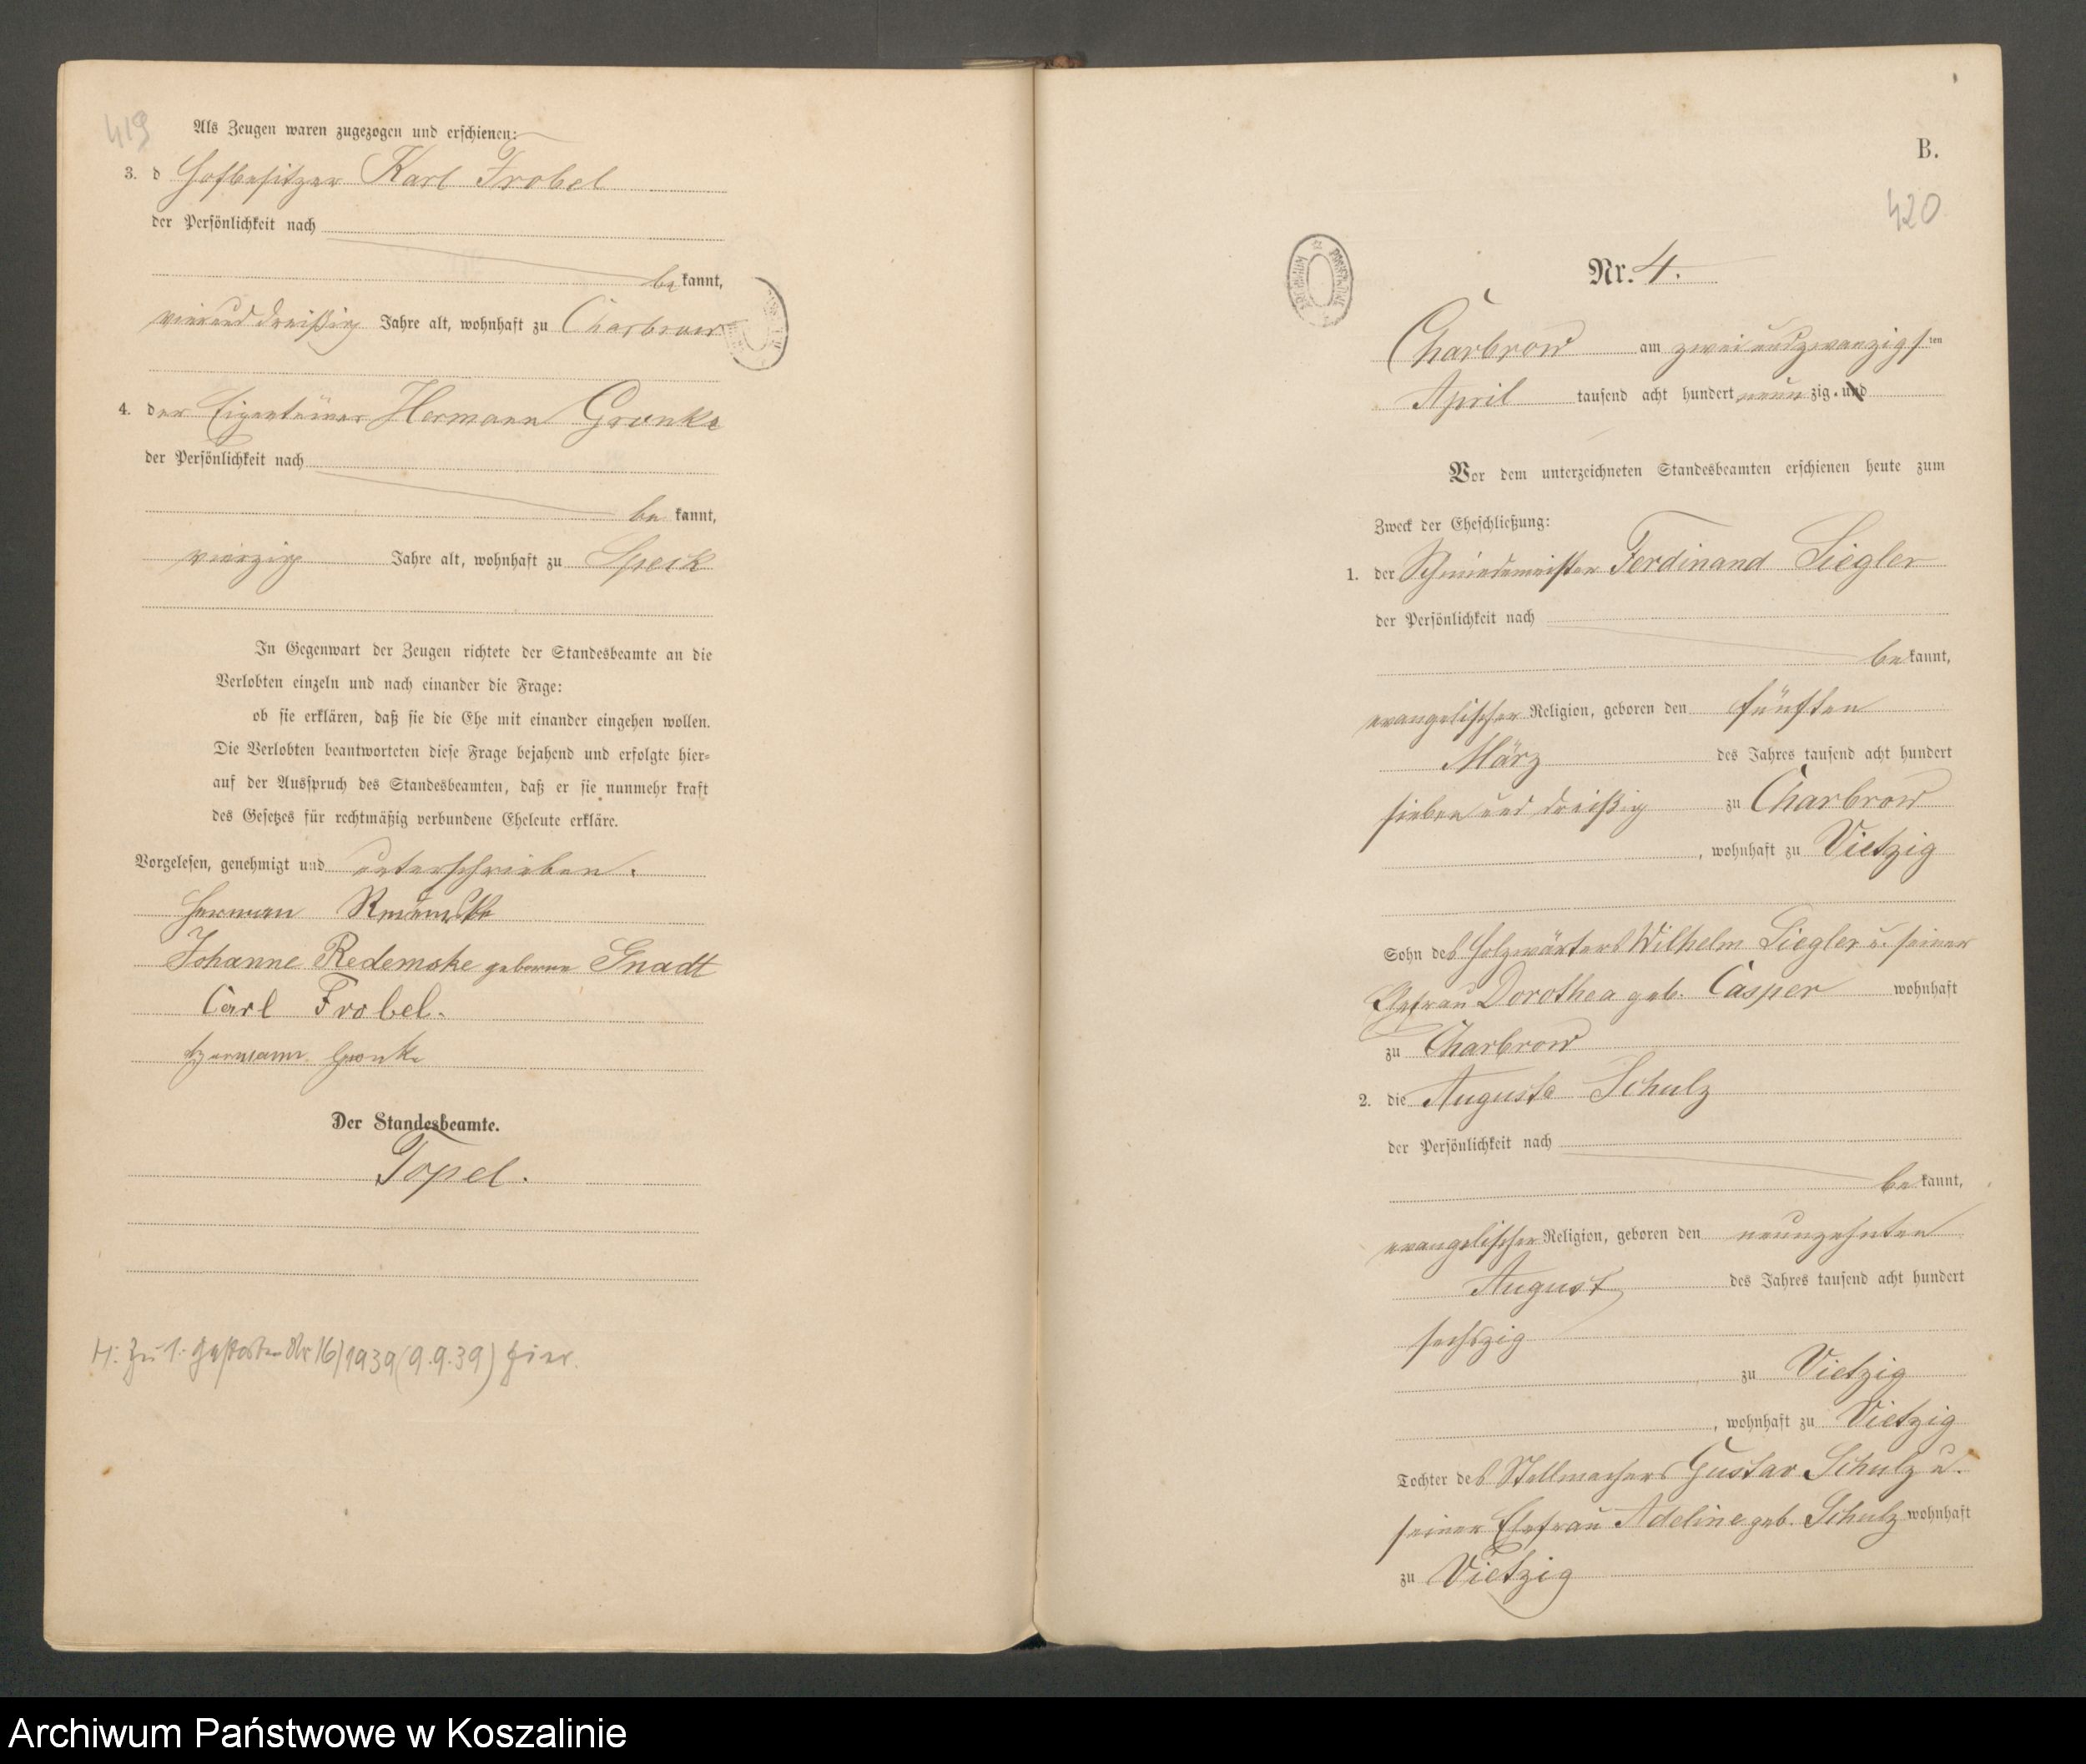 419
Als Zeugen waren zugezogen und erschienen:
3. d Hofbesitzer Karl Frobel
der Persönlichkeit nach
be kannt,
vierund dreißig Jahre alt, wohnhaft zu Charbrow
4. der Eigentümer Hermann Gronke
der Persönlichkeit nach
be kannt,
vierzig Jahre alt, wohnhaft zu Speck
In Gegenwart der Zeugen richtete der Standesbeamte an die
Verlobten einzeln und nach einander die Frage:
ob sie erklären, daß sie die Ehe mit einander eingehen wollen.
Die Verlobten beantworteten diese Frage bejahend und erfolgte hier-
auf der Ausspruch des Standesbeamten, daß er sie nunmehr kraft
des Gesetzes für rechtmäßig verbundene Eheleute erkläre.
Vorgelesen, genehmigt und unterschrieben.
Herman
Johanne Redemske geborene Gnadt
Carl Frobel.
Hermann Gronke
Der Standesbeamte.
Topel.
H. zu 1. gestorben Nr 16/1939 (9.9.39) hier.
B.
420
Nr. 4.
Charbrow am zwei und zwanzigsten
April tausend acht hundert neun zig. und
Vor dem unterzeichneten Standesbeamten erschienen heute zum
Zweck der Eheschließung:
1. der Schmiedemeister Ferdinand Siegler
der Persönlichkeit nach
be kannt,
evangelischer Religion, geboren den fünften
März des Jahres tausend acht hundert
sieben und dreißig zu Charbrow
, wohnhaft zu Vietzig
Sohn des Holzwärters Wilhelm Siegler u. seiner
Ehefrau Dorothea geb. Casper wohnhaft
zu Charbrow
2. die Auguste Schulz
der Persönlichkeit nach
be kannt,
evangelischer Religion, geboren den neunzehnten
August des Jahres tausend acht hundert
sechszig
zu Vietzig
, wohnhaft zu Vietzig
Tochter des Stellmachers Gustav Schulz u.
seiner Ehefrau Adeline geb. Schulz wohnhaft
zu Vietzig
Archiwum Państwowe w Koszalinie